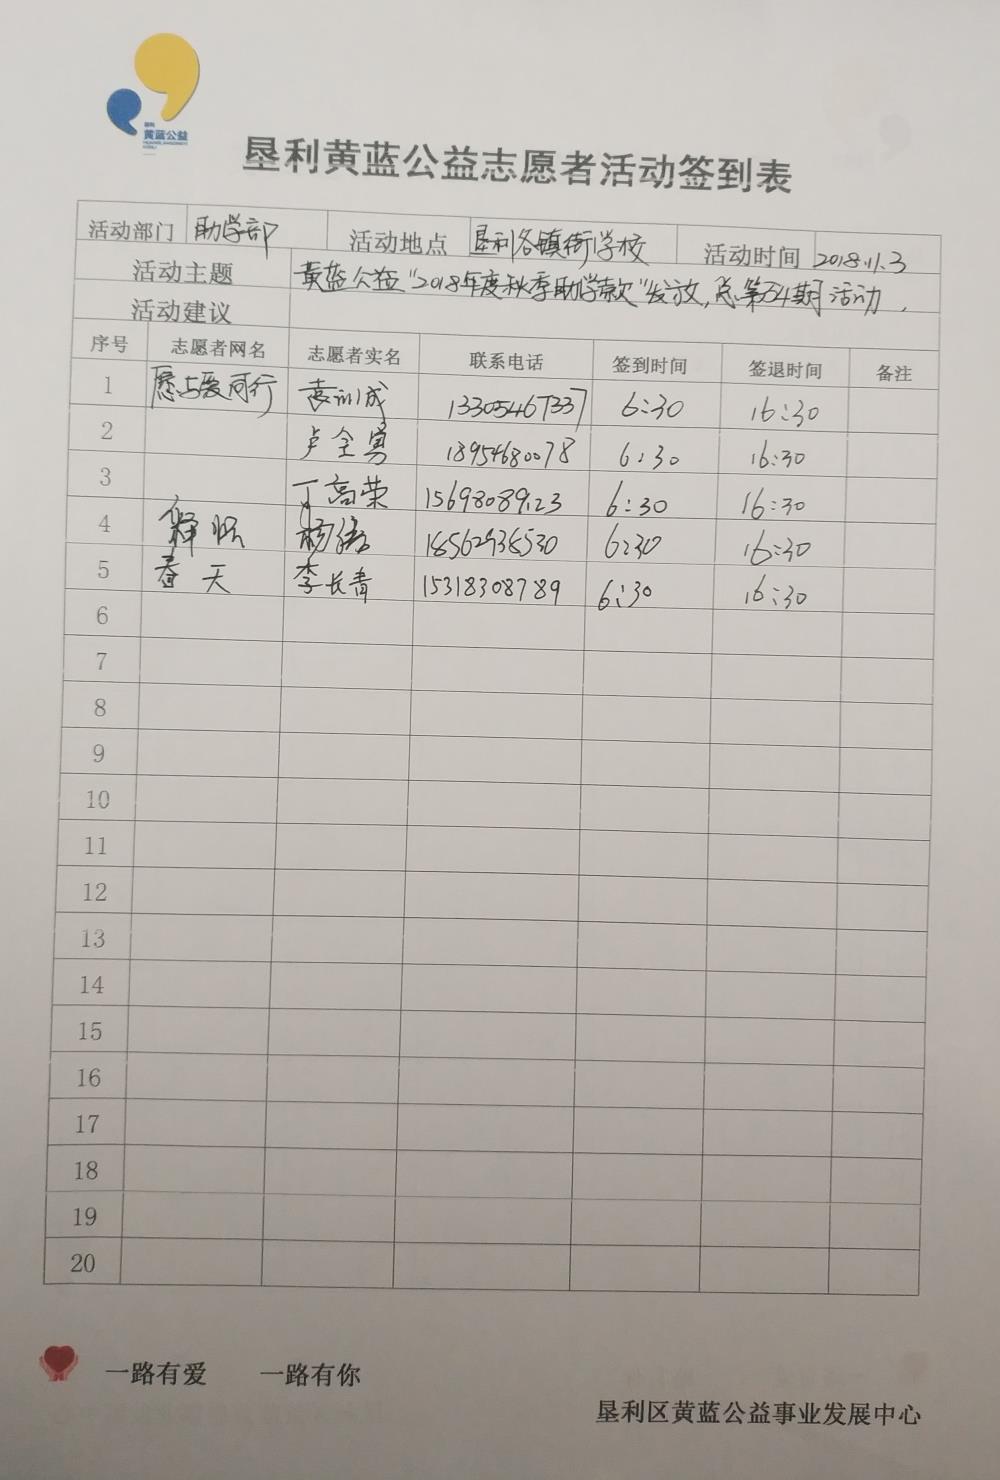 垦利
黄蓝公益
垦利黄蓝公益志愿者活动签到表
活动部门 助学部 活动地点 垦利各镇街学校 活动时间 2018.11.3
活动主题 黄蓝公益“2018年度秋季助学款”发放,总第54期活动.
活动建议
序号 志愿者网名 志愿者实名 联系电话 签到时间 签退时间 备注
1 愿与爱同行 袁训成 13305467337 6:30 16:30
2 卢全勇 18954680078 6:30 16:30
3 丁高荣 15698089123 6:30 16:30
4 18562938530 6:30 16:30
5 春天 李长青 15318308789 6:30 16:30
6
7
8
9
10
11
12
13
14
15
16
17
18
19
20
一路有爱 一路有你
垦利区黄蓝公益事业发展中心